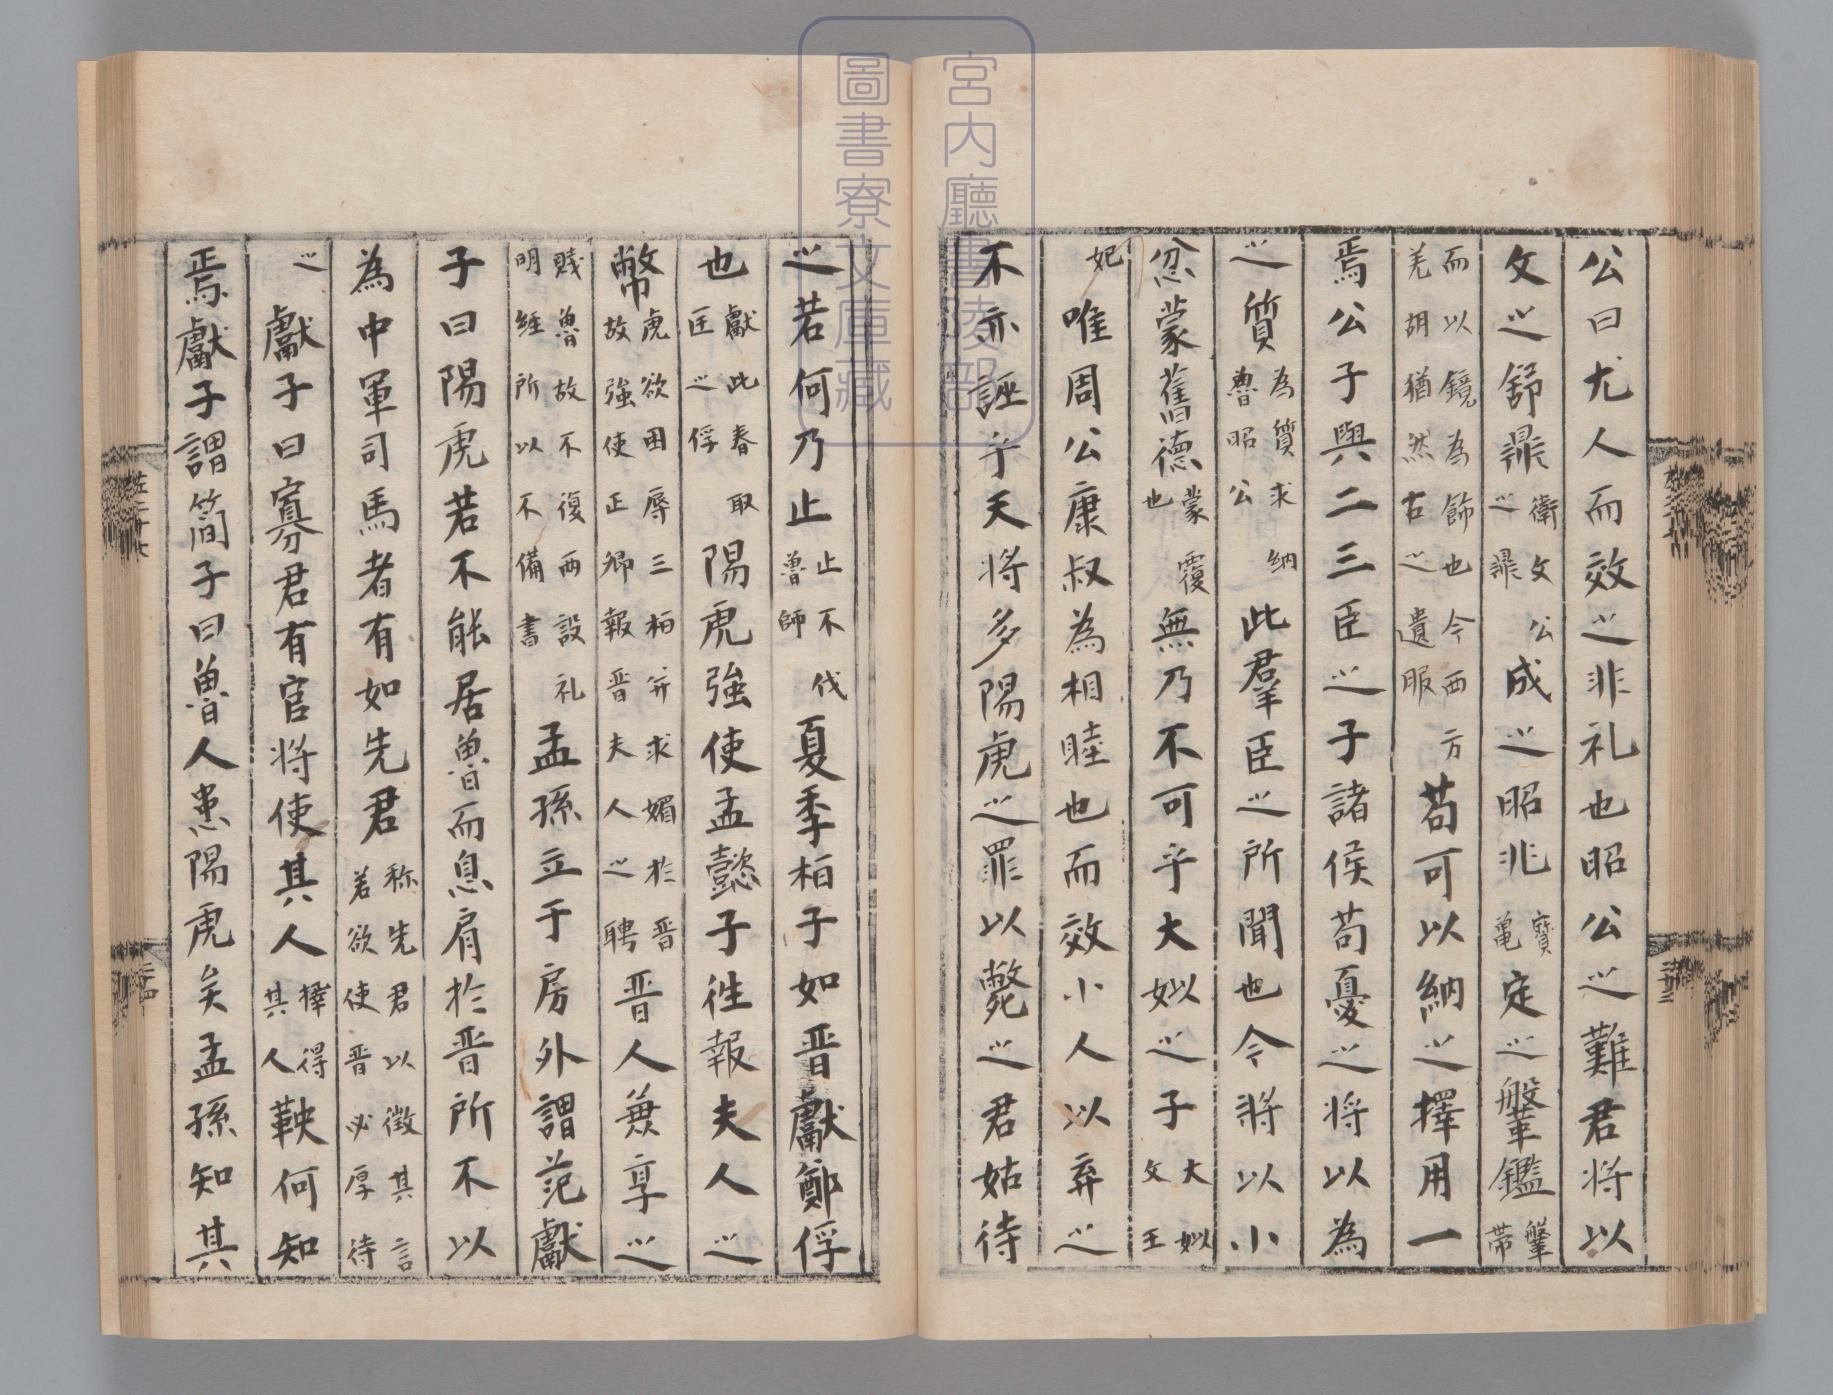 公曰尤人而效之非礼也昭公之難君將以
文之舒鼎衛文公之鼎成之昭兆寳龜定之鞶鑑鞶帶
而以鏡為飾也今西方羌胡猶然古之遺服苟可以納之擇用一
焉公子與二三臣之子諸侯苟憂之將以為
之質為質求納魯昭公此羣臣之所聞也今將以小
忿蒙舊德蒙覆也無乃不可乎大姒之子大姒文王
妃唯周公康叔為相睦也而效小人以弃之
不亦誣乎天將多陽虎之罪以斃之君姑待
之若何乃止止不伐魯師夏季桓子如晋獻鄭俘
也獻此春取匡之俘陽虎強使孟懿子徃報夫人之
幣虎欲困辱三桓并求媚於晋故強使正卿報晋夫人之聘晋人兼享之
賤魯故不復兩設礼明經所以不備書孟孫立于房外謂范獻
子曰陽虎若不能居魯而息肩於晋所不以
為中軍司馬者有如先君称先君以徵其言若欲使晋必厚待
之獻子曰寡君有官將使其人擇得其人鞅何知
焉獻子謂簡子曰魯人患陽虎矣孟孫知其
宮内廳書陵部
圖書寮文庫藏